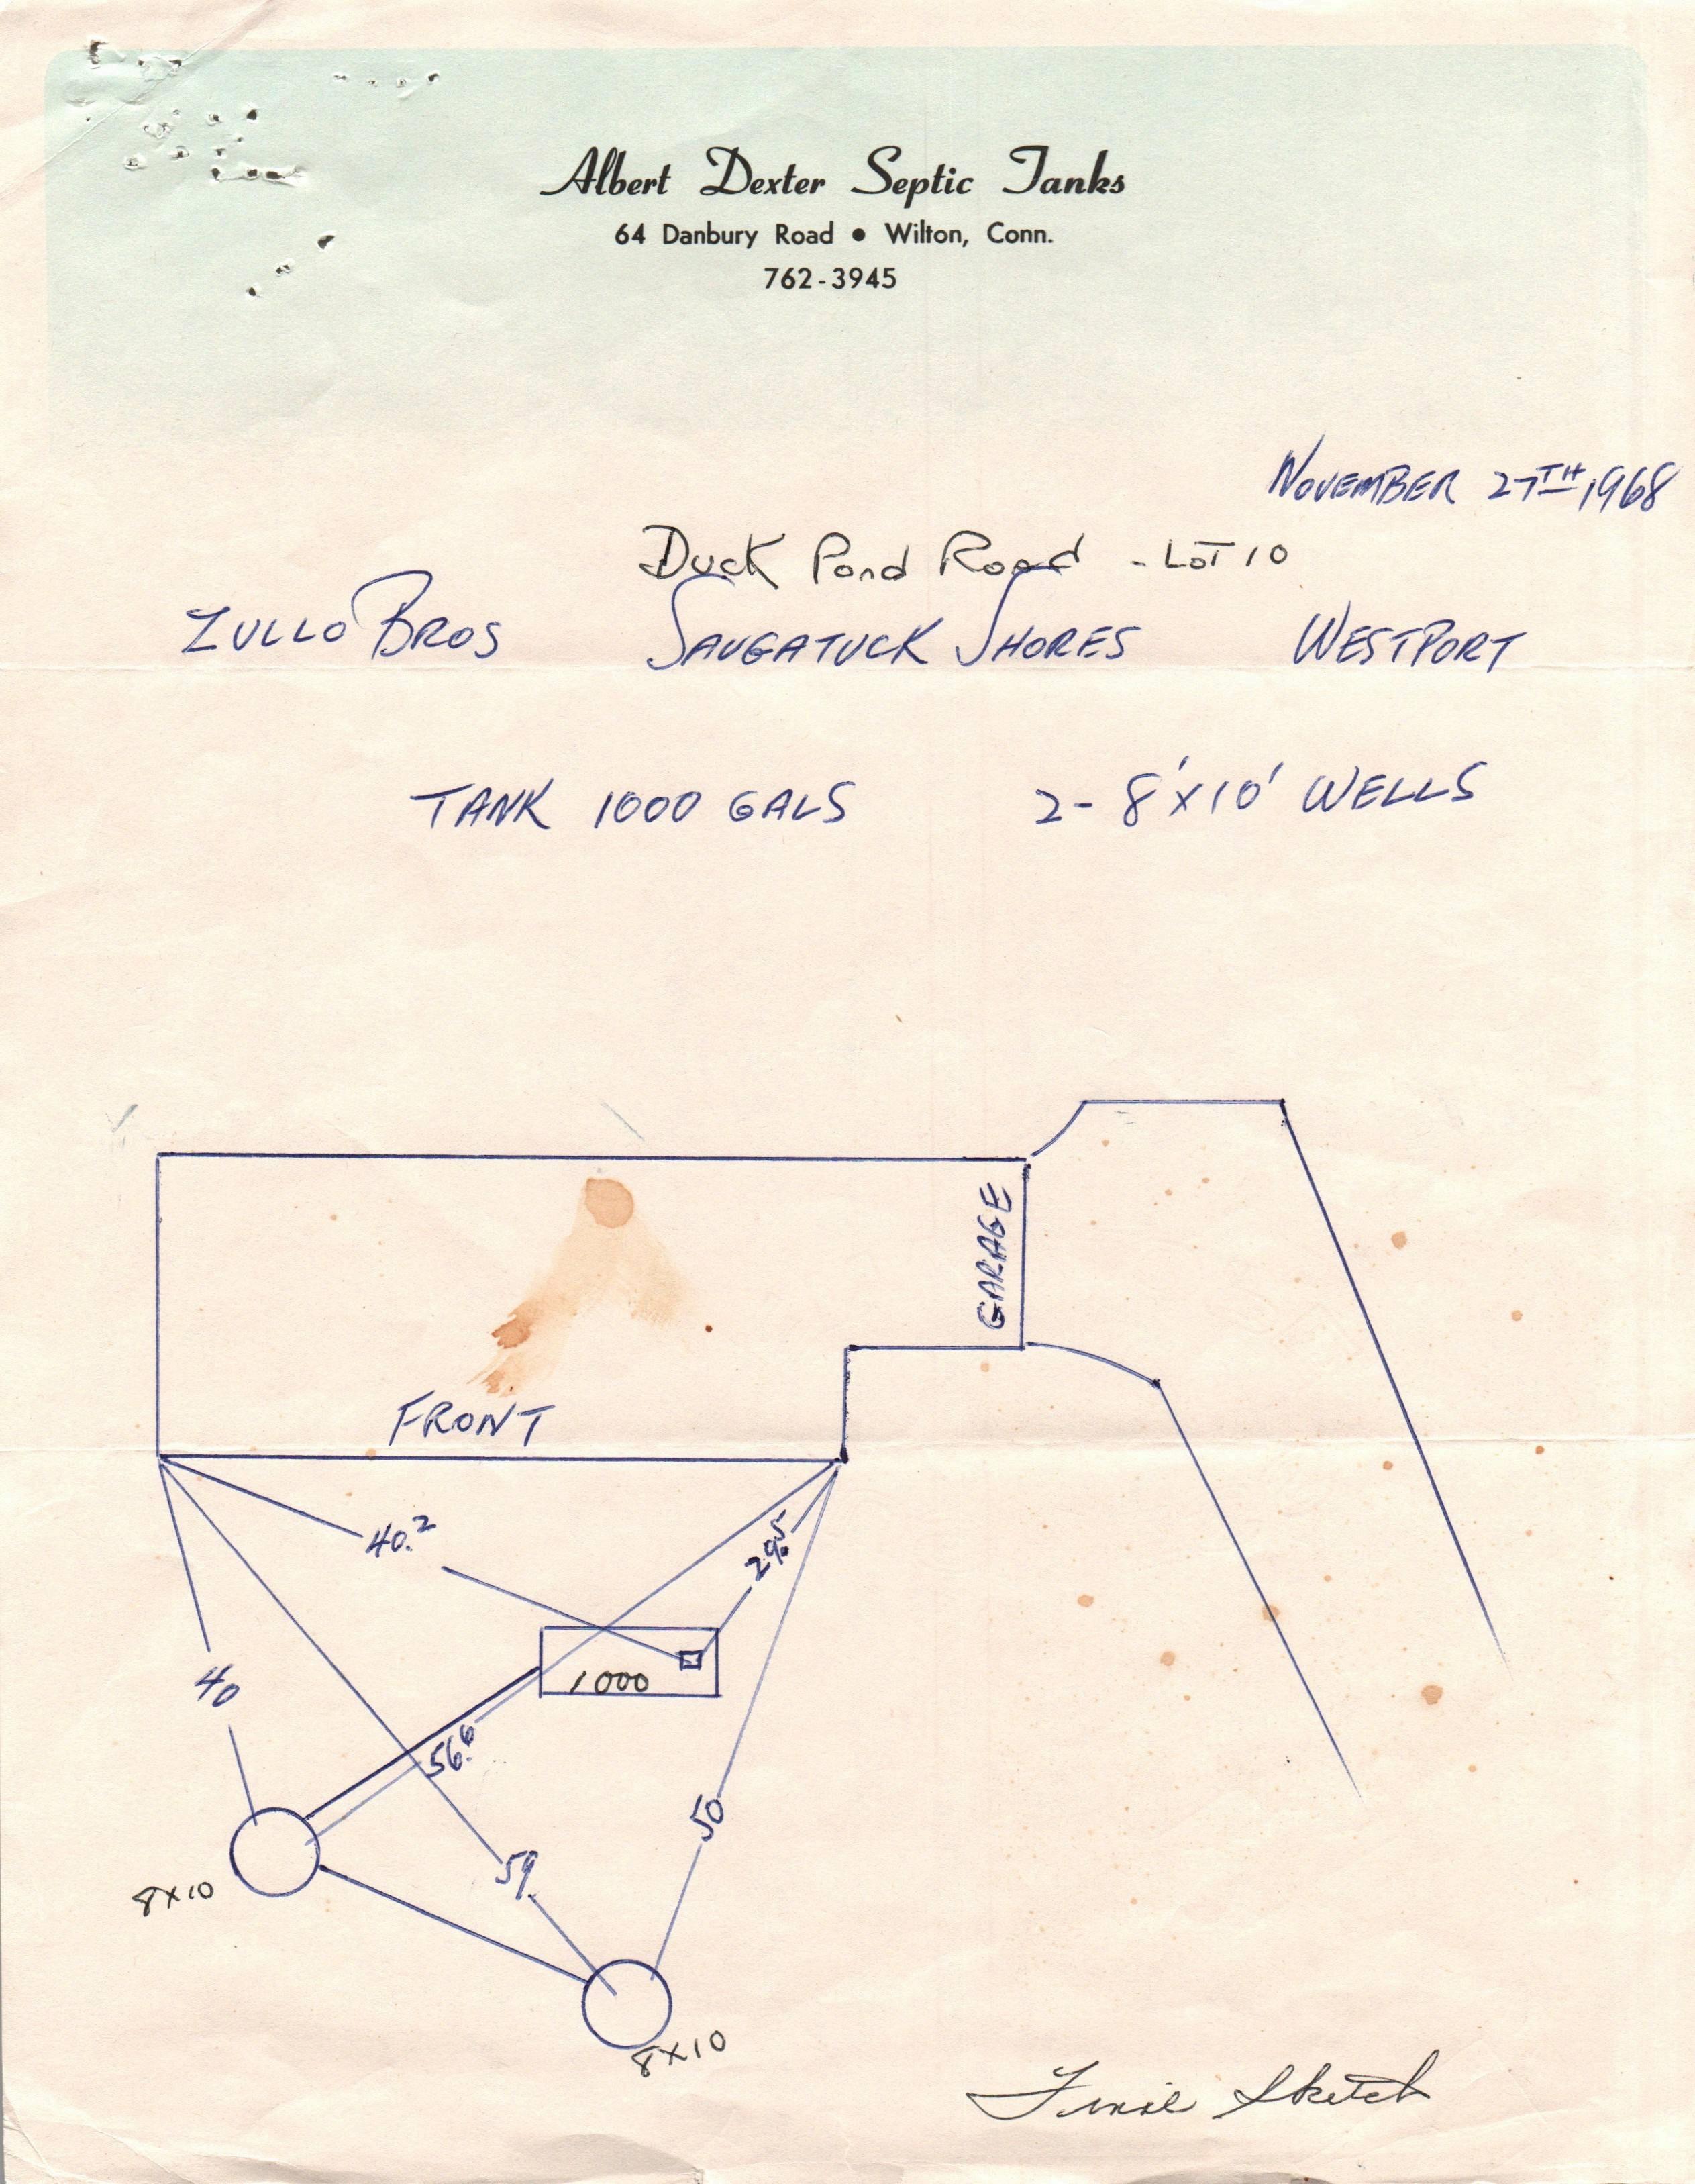 Albert Dexter Septic Tanks
64 Danbury Road • Wilton, Conn.
762-3945
NOVEMBER 27TH, 1968
Duck Pond Road - LOT 10
ZULLO BROS SAUGATUCK SHORES WESTPORT
TANK 1000 GALS 2- 8'X10' WELLS
GARAGE
FRONT
40.2
29.5
40
1000
56.6
50
59
8X10
8X10
Final Sketch